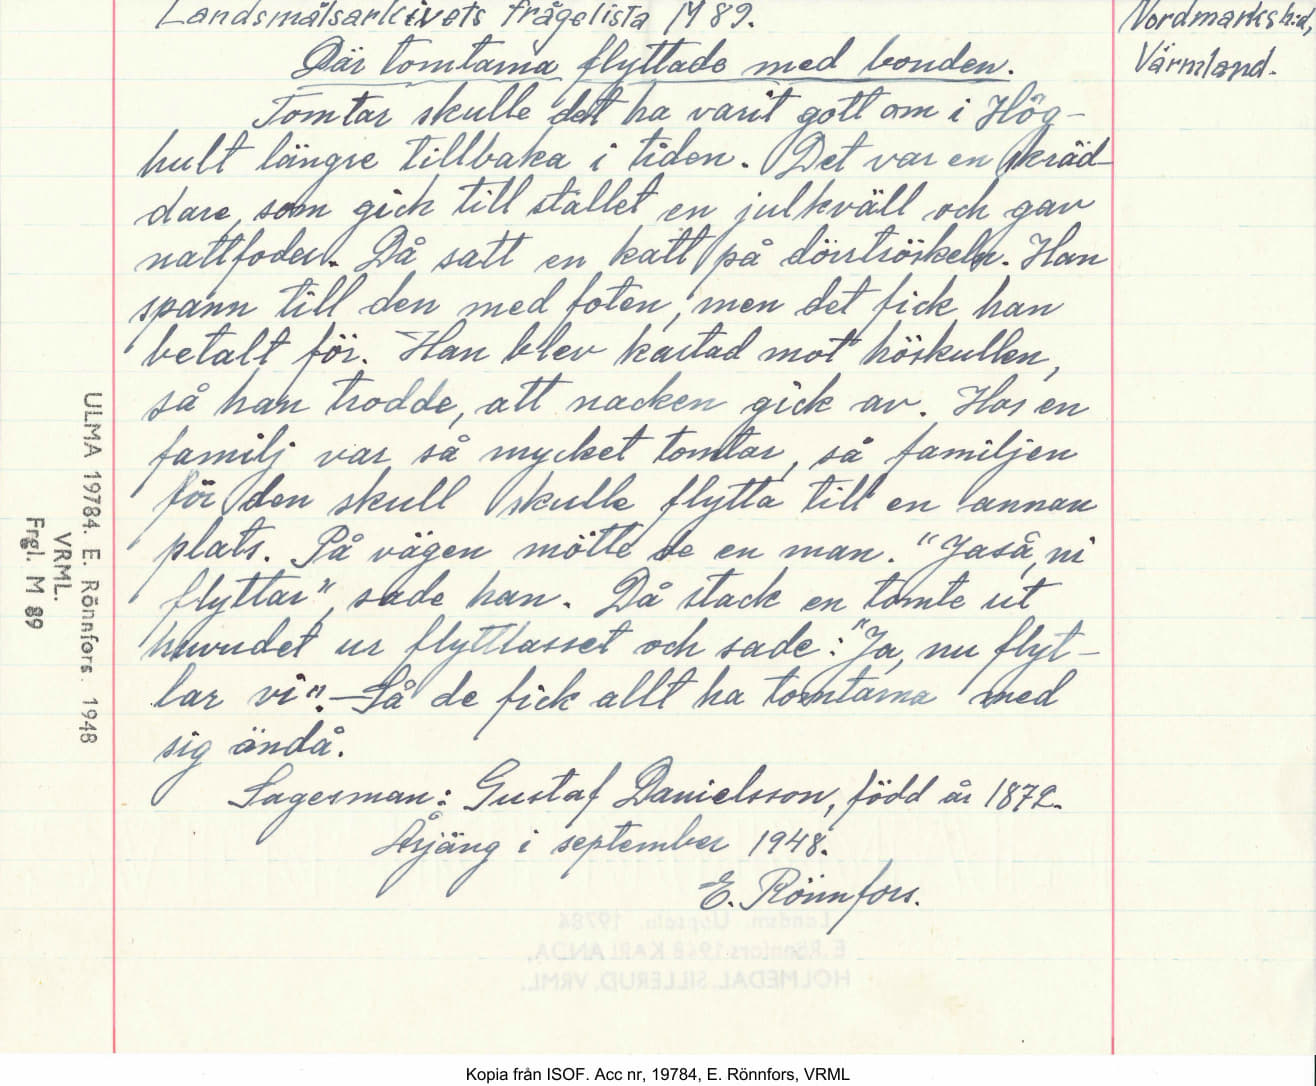 Landsmålsarkivets frågelista M 89.
Nordmarks h:d,
Värmland.
Där tomtarna flyttade med bonden.
Tomtar skulle det ha varit gott om i Hög-
hult längre tillbaka i tiden. Det var en skräd-
dare, som gick till stallet en julkväll och gav
nattfoder. Då satt en katt på dörrtröskeln. Han
spann till den med foten, men det fick han
betalt för. Han blev kastad mot höskullen,
så han trodde, att nacken gick av. Hos en
familj var så mycket tomtar, så familjen
för den skull skulle flytta till en annan
plats. På vägen mötte de en man. "Jaså, ni
flyttar", sade han. Då stack en tomte ut
huvudet ur flyttlasset och sade: "Ja, nu flyt-
tar vi". – Så de fick allt ha tomtarna med
sig ändå.
Sagesman: Gustaf Danielsson, född år 1872.
Årjäng i september 1948.
E. Rönnfors.
ULMA 19784. E. Rönnfors. 1948
VRML.
Frgl. M 89
Landsm. Uppsala 19784
E. Rönnfors 1948 KARLANDA,
HOLMEDAL, SILLERUD, VRML.
Kopia från ISOF. Acc nr, 19784, E. Rönnfors, VRML